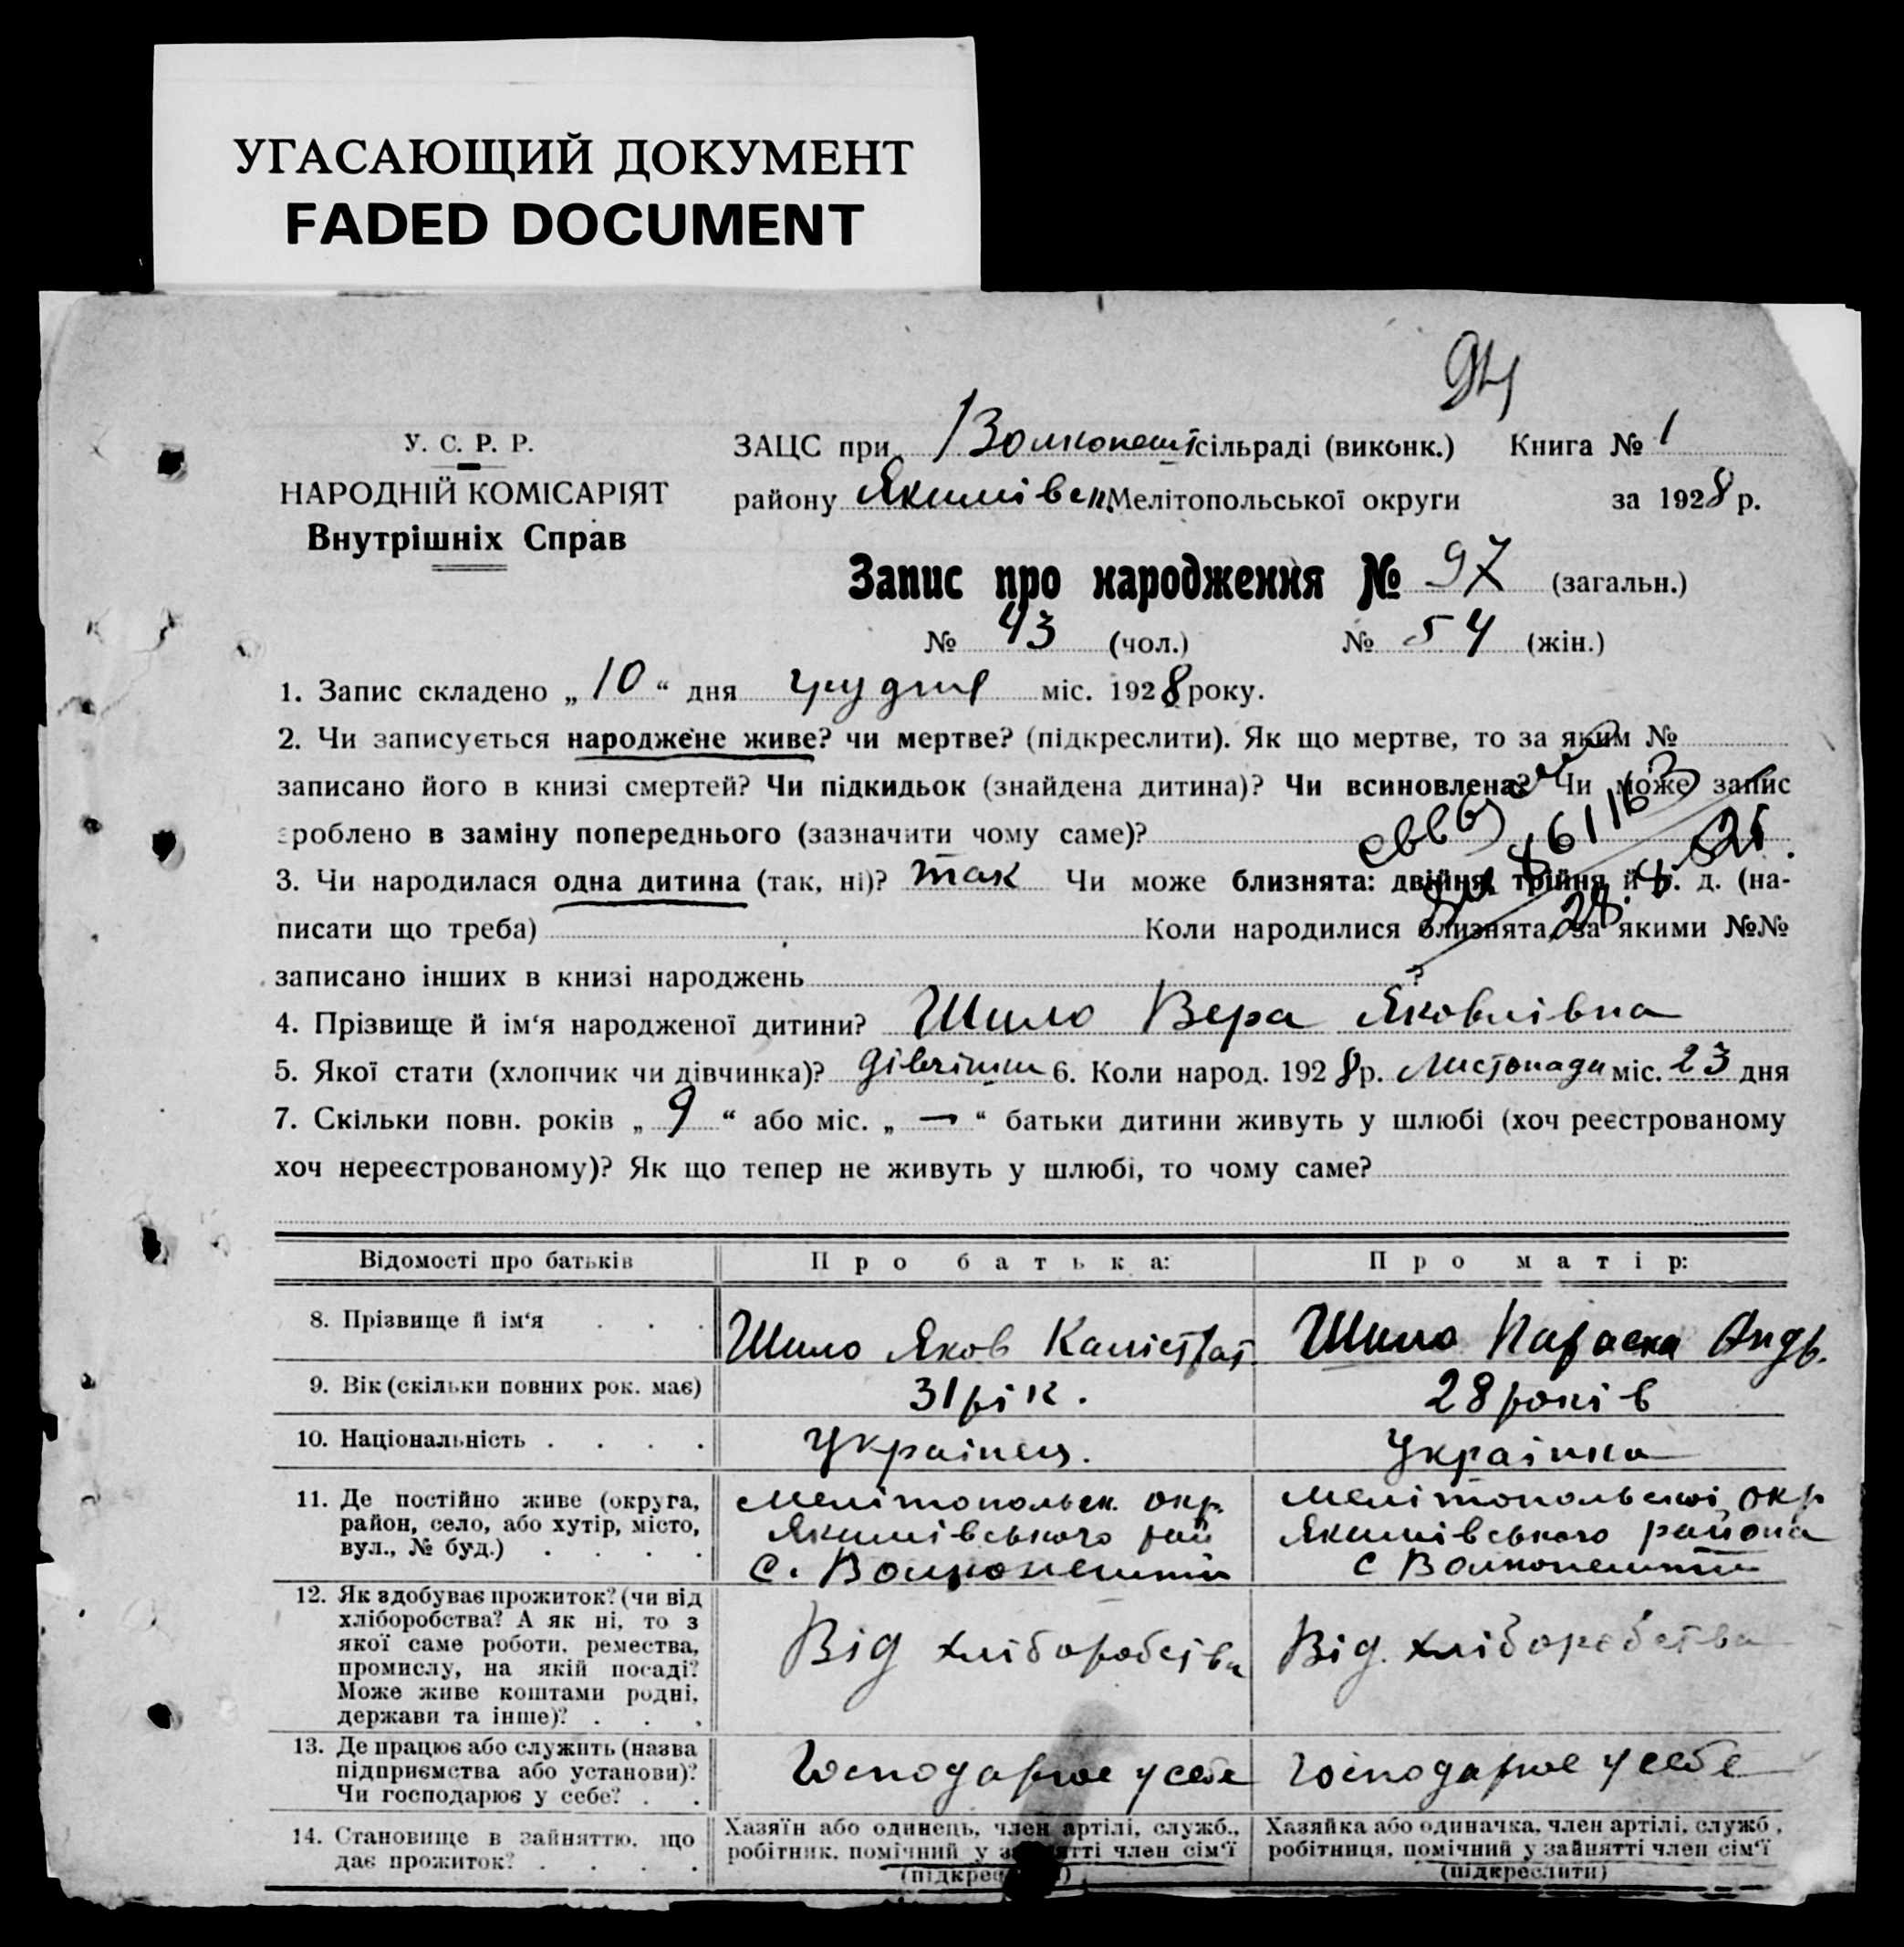 УГАСАЮЩИЙ ДОКУМЕНТ
FADED DOCUMENT
У. С. Р. Р.
НАРОДНІЙ КОМІСАРІЯТ
Внутрішніх Справ
ЗАЦС при сільраді (виконк.) Книга № 1
району Якимівск. Мелітопольської округи за 1928 р.
Запис про народження № 97 (загальн.)
№ 43 (чол.) № 54 (жін.)
1. Запис складено „ 10 “ дня грудня міс. 1928 року.
2. Чи записується народжене живе? чи мертве? (підкреслити). Як що мертве, то за яким №
записано його в книзі смертей? Чи підкидьок (знайдена дитина)? Чи всиновлена? Чи може запис
зроблено в заміну попереднього (зазначити чому саме)?
3. Чи народилася одна дитина (так, ні)? так Чи може близнята: двійня, трійня й т. д. (на-
писати що треба) Коли народилися близнята, за якими №№
записано інших в книзі народжень ?
4. Прізвище й ім‘я народженої дитини? Шило Вера Яковлівна
5. Якої стати (хлопчик чи дівчинка)? дівчинка 6. Коли народ. 1928 р. Листопада міс. 23 дня
7. Скільки повн. років „ 9 “ або міс. „ — “ батьки дитини живуть у шлюбі (хоч реєстрованому
хоч нереєстрованому)? Як що тепер не живуть у шлюбі, то чому саме?
Відомості про батьків Про батька: Про матір:
8. Прізвище й ім‘я . . . Шило Яков Калістрат. Шило Параска Андр.
9. Вік (скільки повних рок. має) 31 рік. 28 років
10. Національність . . . . Українец. Українка
11. Де постійно живе (округа, район, село, або хутір, місто, вул., № буд.) . . . .
Мелітопольск. окр.
Якимівського рай
с.
Мелітопольської окр
Якимівського района
с
12. Як здобуває прожиток? (чи від хліборобства? А як ні, то з якої саме роботи, ремества, промислу, на якій посаді? Може живе коштами родні, держави та інше)? . . .
Від хліборобства Від. хліборобства
13. Де працює або служить (назва підприємства або установи)? Чи господарює у себе? . .
Господарює у себе Господарює у себе
14. Становище в зайняттю, що дає прожиток? . . . .
Хазяїн або одинець, член артілі, служб.,
робітник, помічний у занятті член сім‘ї
(підкреслити)
Хазяйка або одиначка, член артілі, служб.,
робітниця, помічний у зайнятті член сім‘ї
(підкреслити)